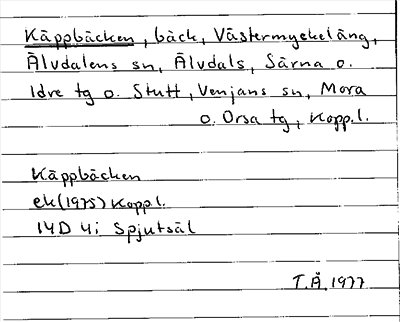 Käppbäcken, bäck, Västermyckeläng,
Älvdalens sn, Älvdals, Särna o.
Idre tg o. Stutt, Venjans sn, Mora
o. Orsa tg, Kopp.l.
Käppbäcken
ek(1975) Kopp.l.
14D 4i Spjutsäl
T.Å. 1977